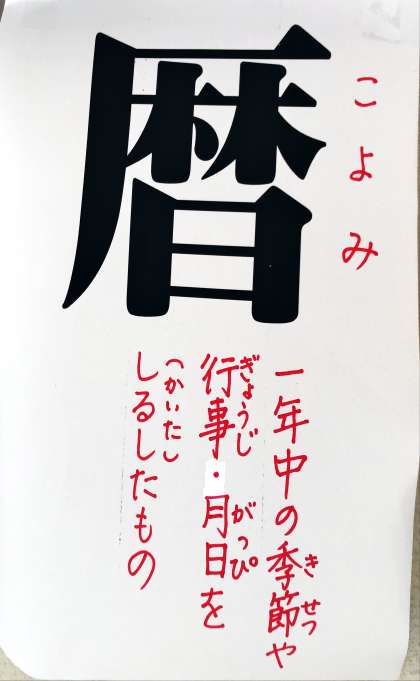 暦
こよみ
一年中の季節や
きせつ
行事・月日を
ぎょうじ
がっぴ
しるしたもの
(かいたし